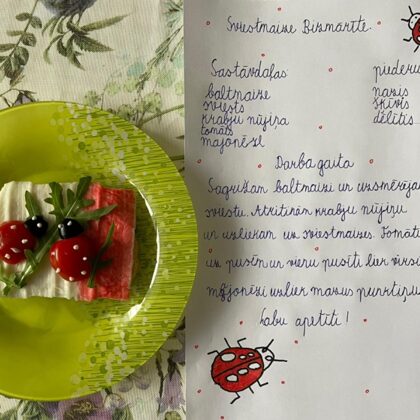 Sviestmaize Bizmārīte.
Sastāvdaļas
baltmaize
sviests
krabju nūjiņa
tomāts
majonēze
piederu
nazis
šķīvis
dēlītis
Darba gaita
Sagriežam baltmaizi un uzsmērējam
sviestu. Atritinām krabju nūjiņu
un uzliekam uz sviestmaizes. Tomāti
uz pusēm un vienu pusīti liek virsū
majonēzi uzliek mazus punktiņu
Labu apetīti!